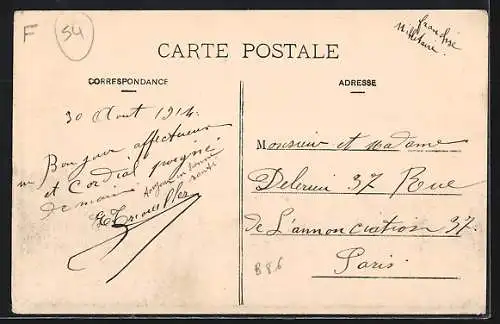 F 54
franchise
Militaire
CARTE POSTALE
CORRESPONDANCE
ADRESSE
30 Aout 1914.
Bonjour affectueux
et Cordial poigné
de main
toujour en bonne
santé
Monsieur et Madame
37 Rue
de L'annonciation 37.
Paris.
B 86